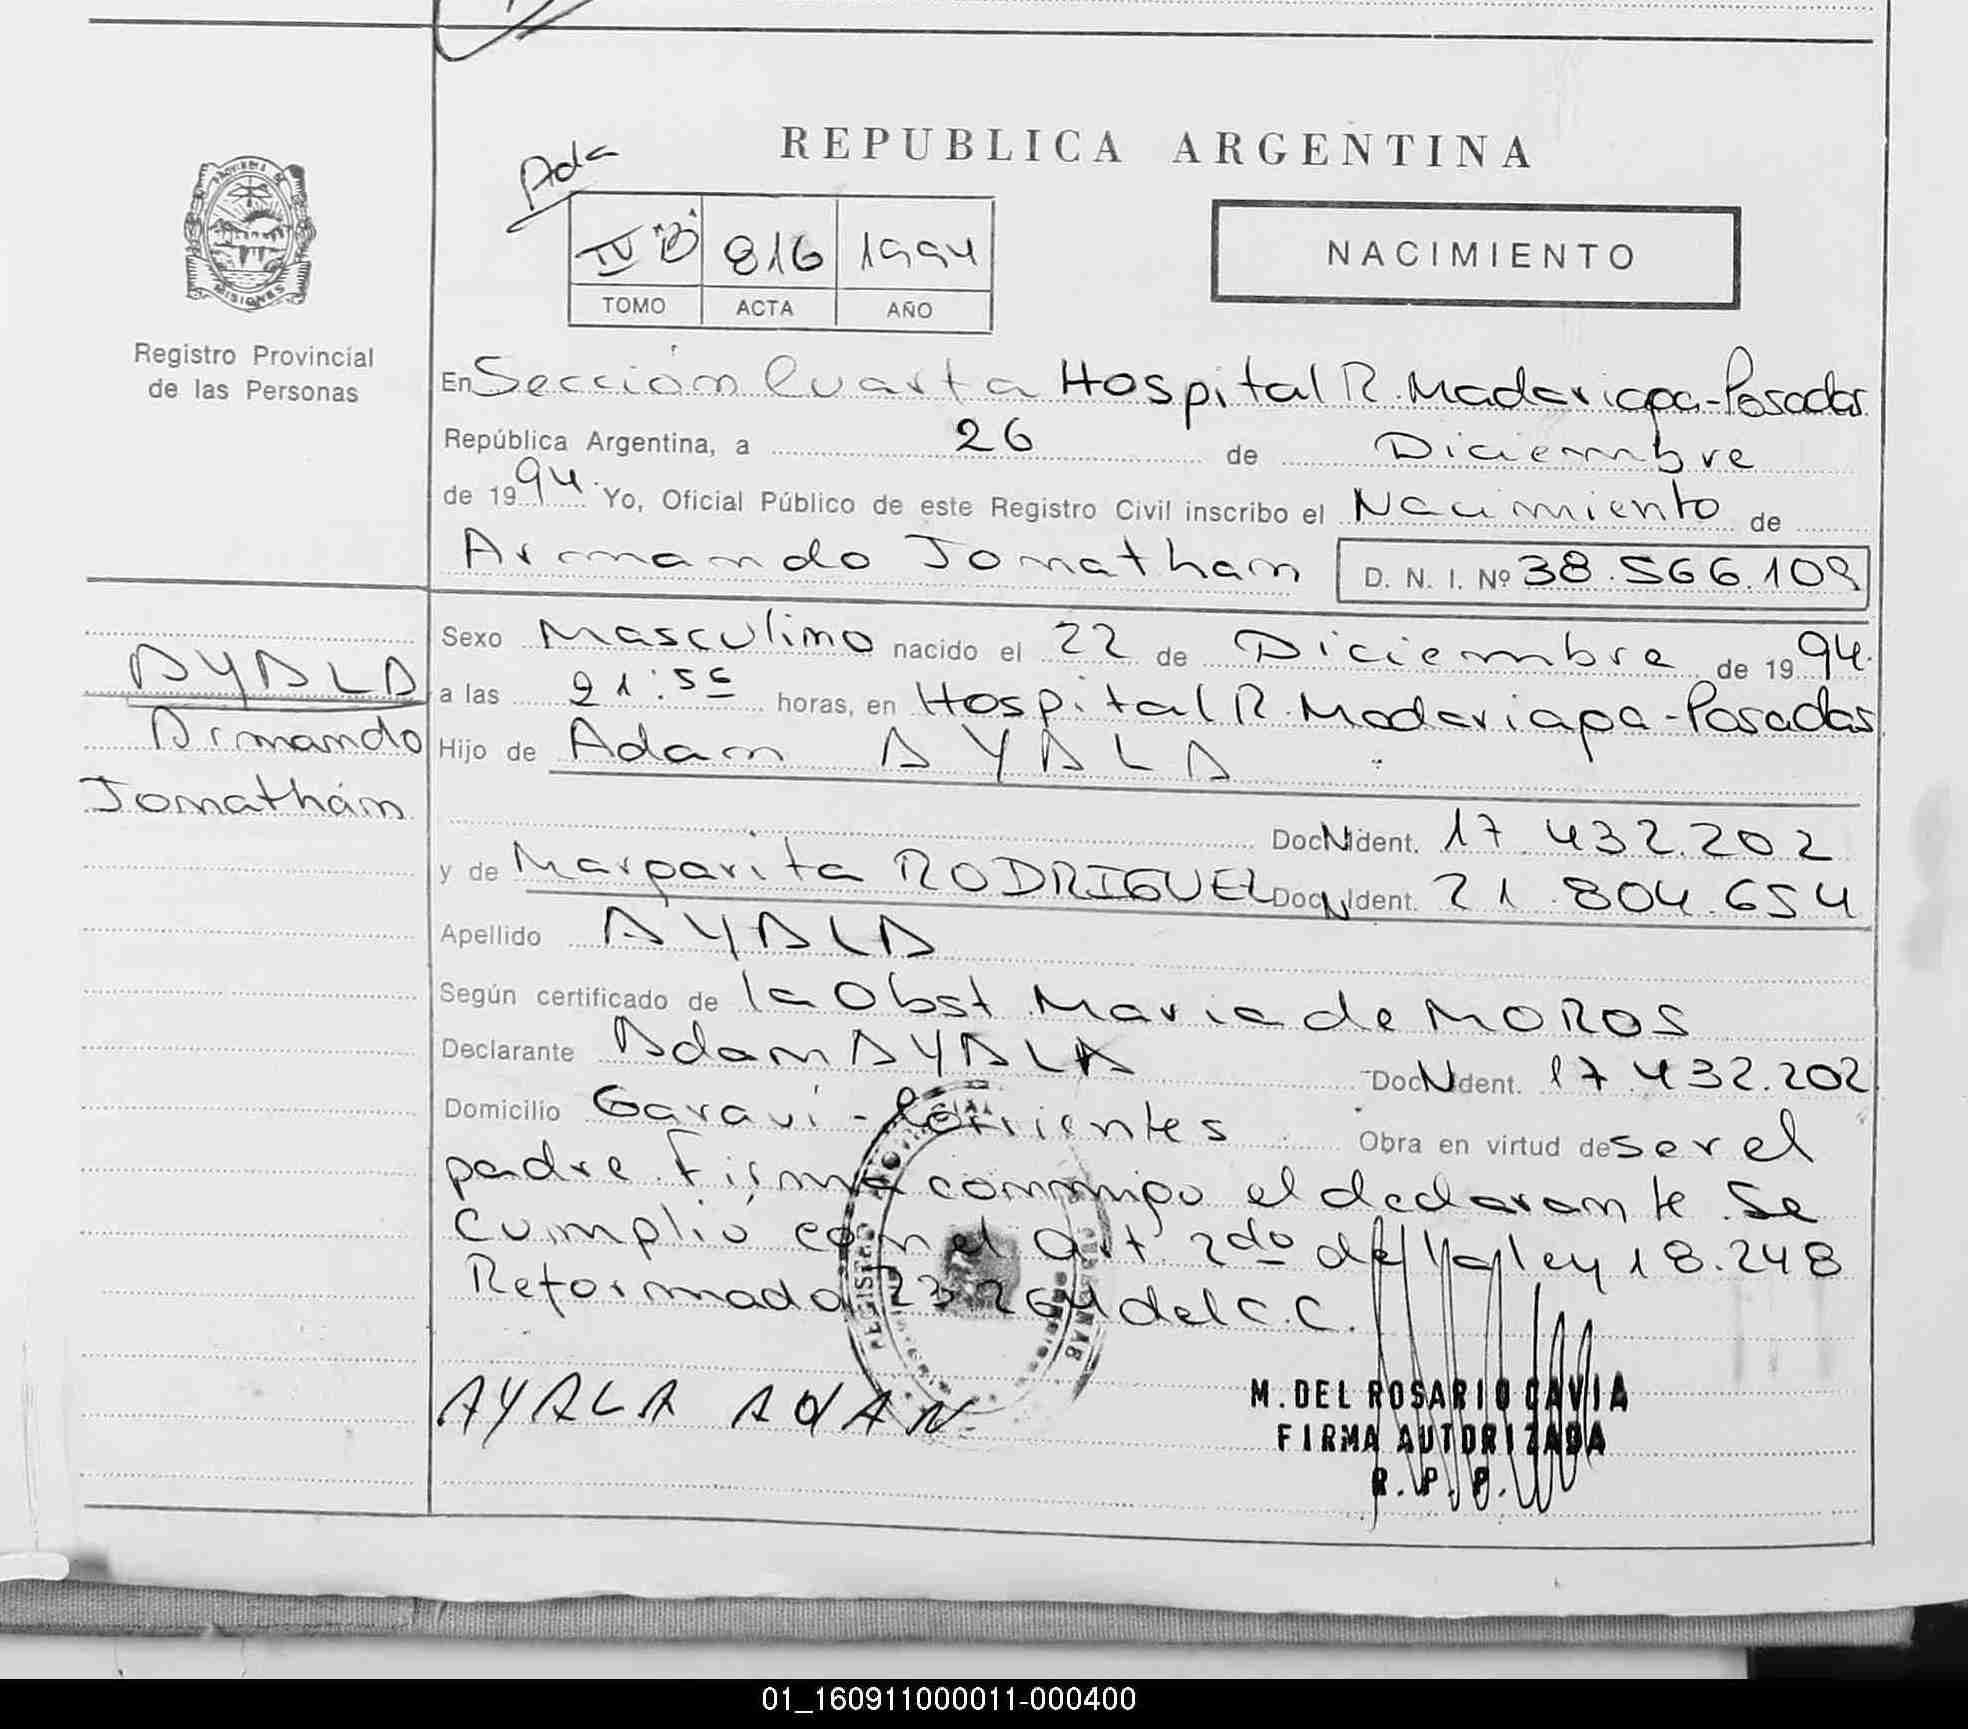 REPUBLICA ARGENTINA
Ada
IV "B" 816 1994
TOMO ACTA AÑO
NACIMIENTO
PROVINCIA DE
MISIONES
Registro Provincial
de las Personas
En Sección Cuarta Hospital R. Madariaga - Posadas
República Argentina, a 26 de Diciembre
de 1994. Yo, Oficial Público de este Registro Civil inscribo el Nacimiento de
Armando Jonathan D. N. I. Nº 38.566.109
AYALA
Armando
Jonathán
Sexo Masculino nacido el 22 de Diciembre de 1994.
a las 21:56 horas, en Hospital R. Madariaga - Posadas
Hijo de Adam AYALA
Doc N Ident. 17.432.202
y de Margarita RODRIGUEZ Doc N Ident. 21.804.654
Apellido AYALA
Según certificado de la Obst Maria de MOROS
Declarante Adam AYALA Doc N Ident. 17.432.202
Domicilio Garaví - Corrientes Obra en virtud de ser el
padre. Firma conmigo el declarante. Se
cumplió con el Art 2do de la ley 18.248
Reformada 23.264 del C.C.
AYALA ADAN
M. DEL ROSARIO CAVIA
FIRMA AUTORIZADA
R. P. P.
01_160911000011-000400